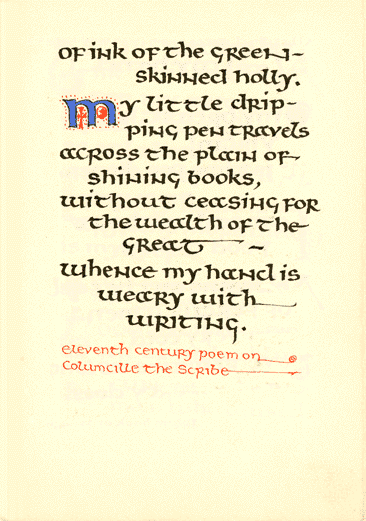 of ink of the green-
skinned holly.
My little drip-
ping pen travels
across the plain of
shining books,
without ceasing for
the wealth of the
great ~
whence my hand is
weary with
writing.
eleventh century poem on
Columcille the Scribe